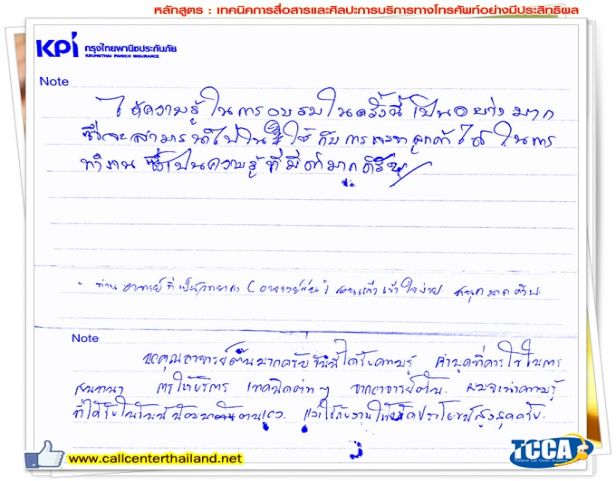 หลักสูตร : เทคนิคการสื่อสารและศิลปะการบริการทางโทรศัพท์อย่างมีประสิทธิผล
KPI กรุงไทยพานิชประกันภัย
KRUNGTHAI PANICH INSURANCE
Note
ได้ความรู้ในการอบรมในครั้งนี้เป็นอย่างมาก
ซึ่งจะสามารถนำไปใช้ กับการ ลูกค้าได้ในการ
ทำงาน ซึ่งเป็นความรู้ที่มี มาก
ท่าน อาจารย์ ที่เป็นวิทยากร เข้าใจง่าย สนุกมากครับ
Note
ขอบคุณอาจารย์ มากครับ วันนี้ได้รับความรู้ คำพูดที่ควรใช้ในการ
สนทนา การให้บริการ เทคนิคต่างๆ จากอาจารย์ ผมจะนำความรู้
ที่ได้รับในวันนี้ พัฒนาตนเอง และใช้กับงานให้เกิดประโยชน์สูงสุดครับ
www.callcenterthailand.net
TCCA